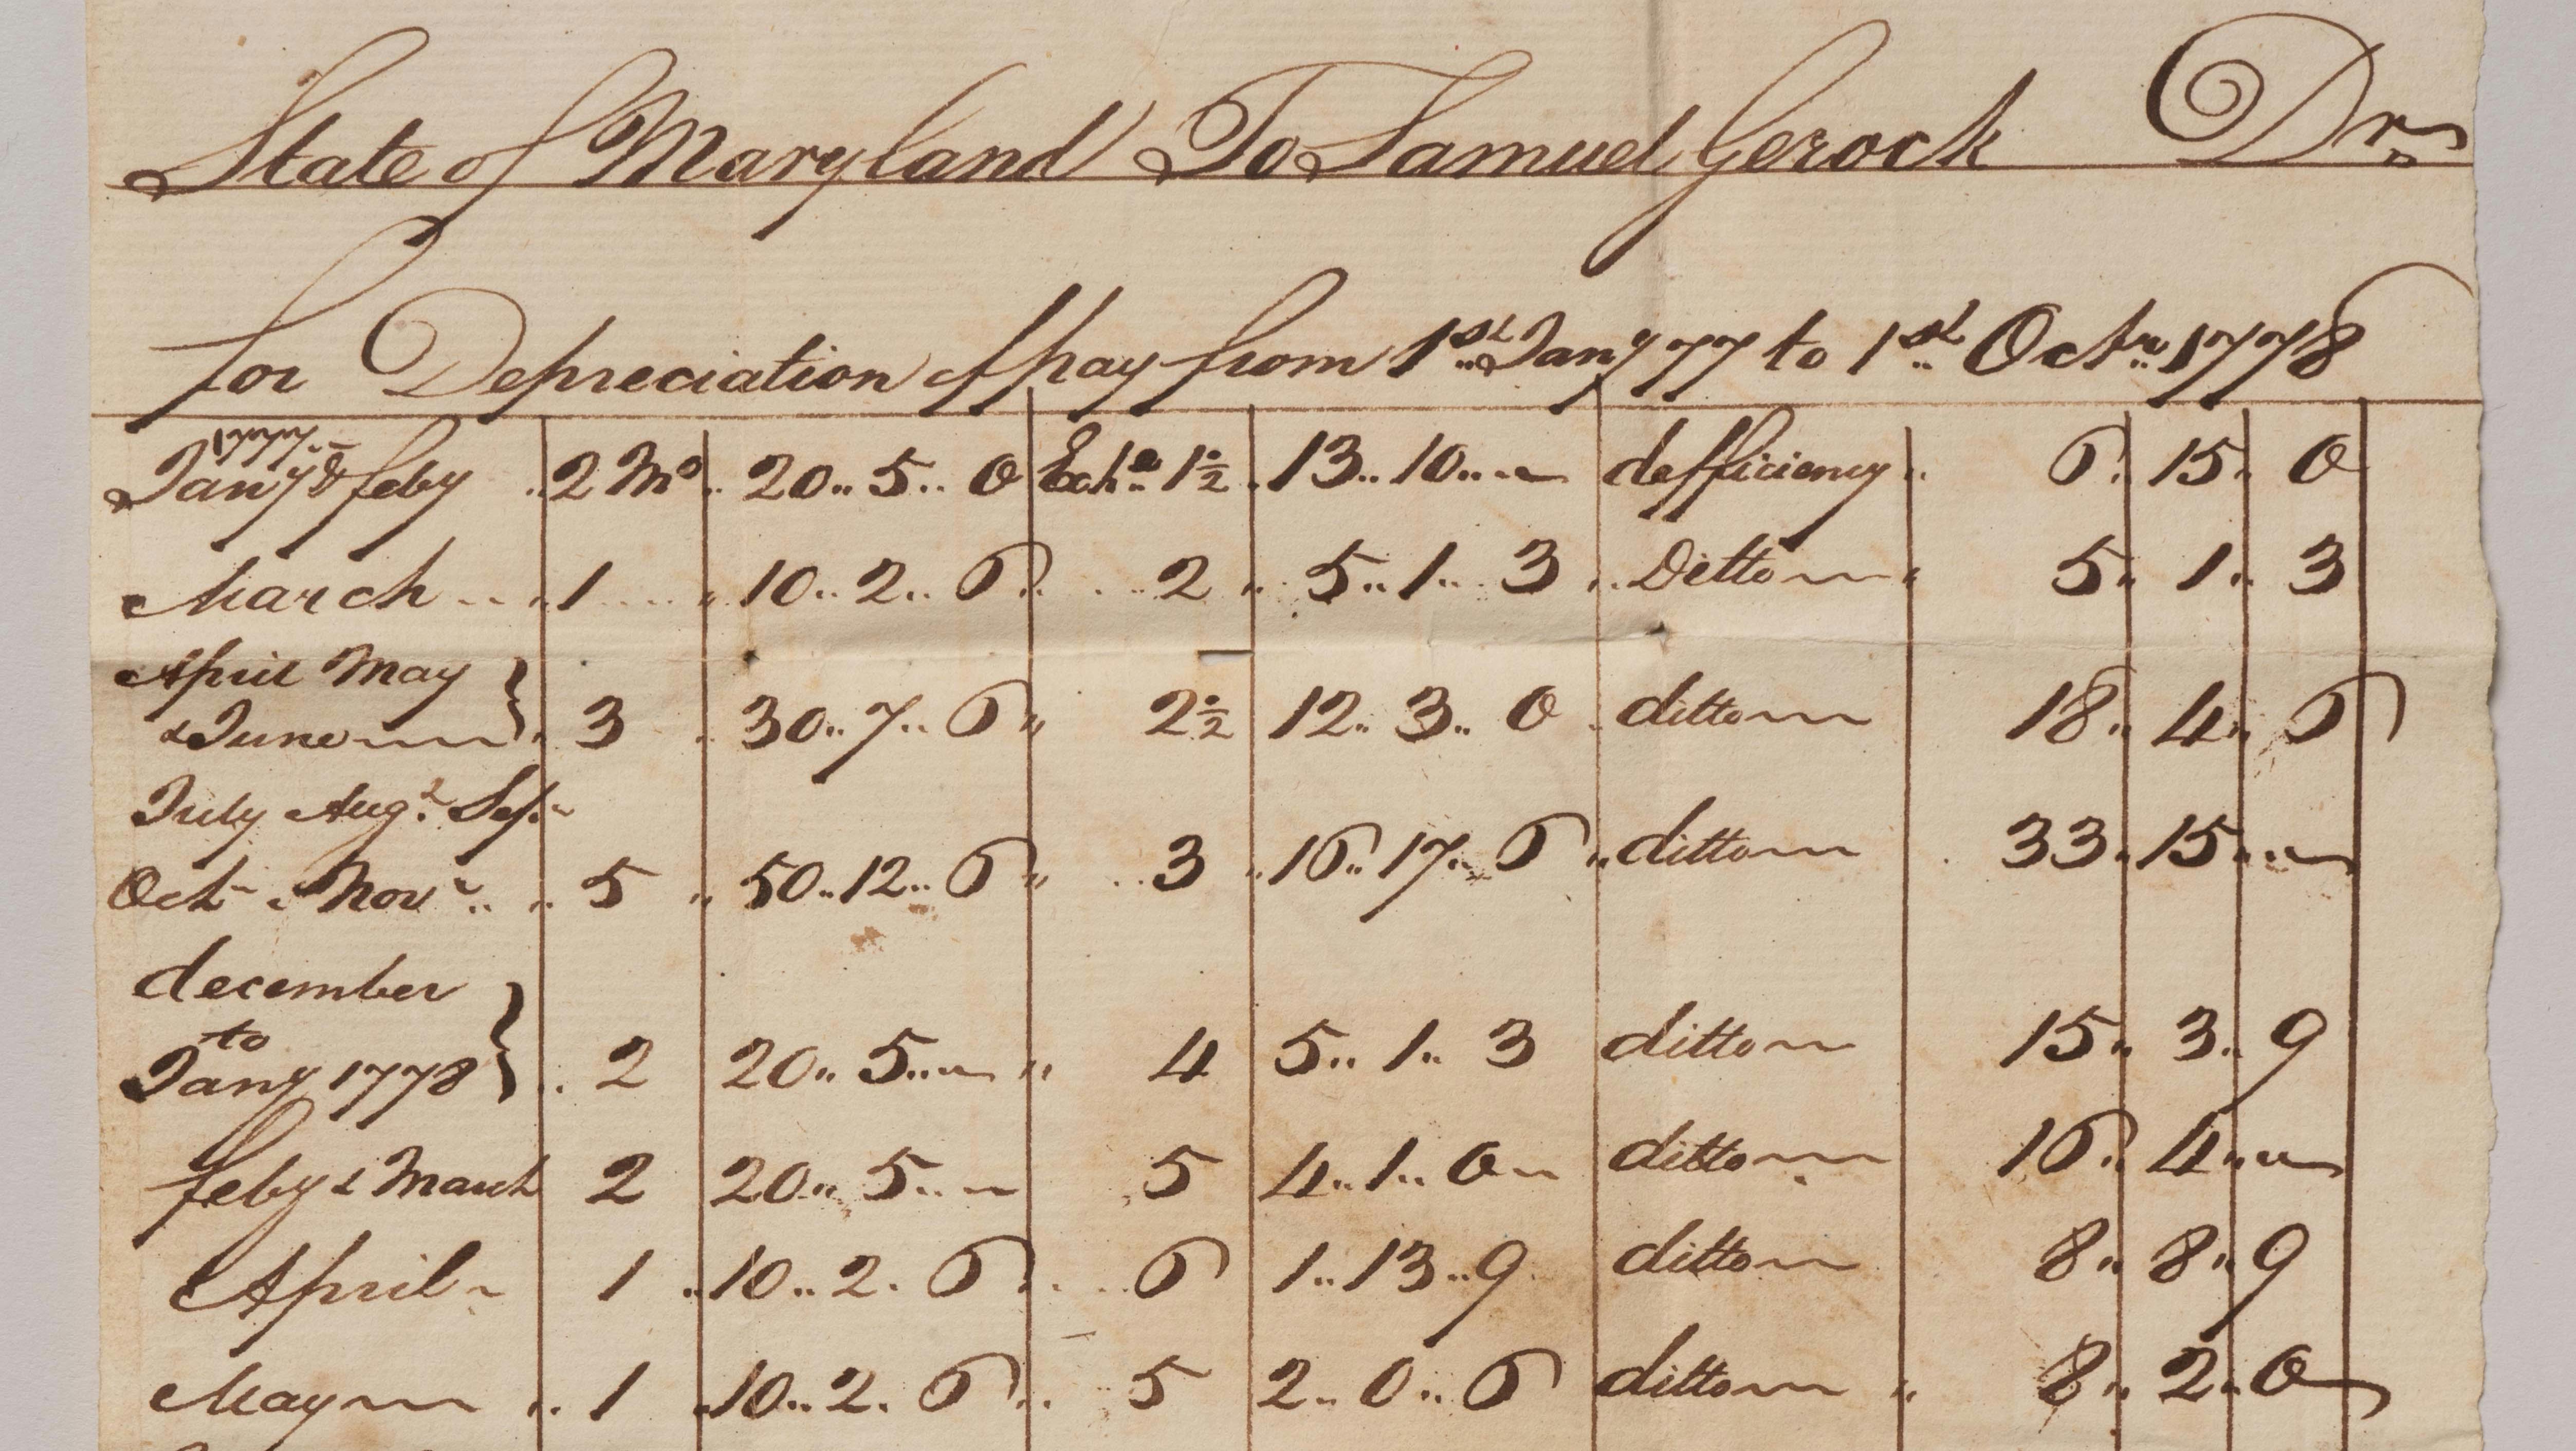 State of Maryland To Samuel Gerock Dr
for Depreciation of pay from 1st Jany 77 to 1st Octr 1778
Jany & feby 2 Mo 20.. 5.. 0 Exha 1½ 13.. 10.. defficiency 6. 15. 0
March 1 10.. 2.. 6 2 5.. 1.. 3 Ditto 5.. 1.. 3
April May
& June } 3 30.. 7.. 6 2½ 12.. 3.. 0 ditto 18.. 4.. 6
July Augt Sepr
Octr & Novr 5 50.. 12.. 6 3 16.. 17.. 6 ditto 33.. 15..
december
to
Jany 1778 } 2 20.. 5.. 4 5.. 1.. 3 ditto 15.. 3.. 9
feby & March 2 20.. 5.. 5 4.. 1.. 0 ditto 16.. 4..
April 1 10.. 2.. 6 6 1.. 13.. 9 ditto 8.. 8.. 9
May 1 10.. 2.. 6 5 2.. 0.. 6 ditto 8.. 2.. 0